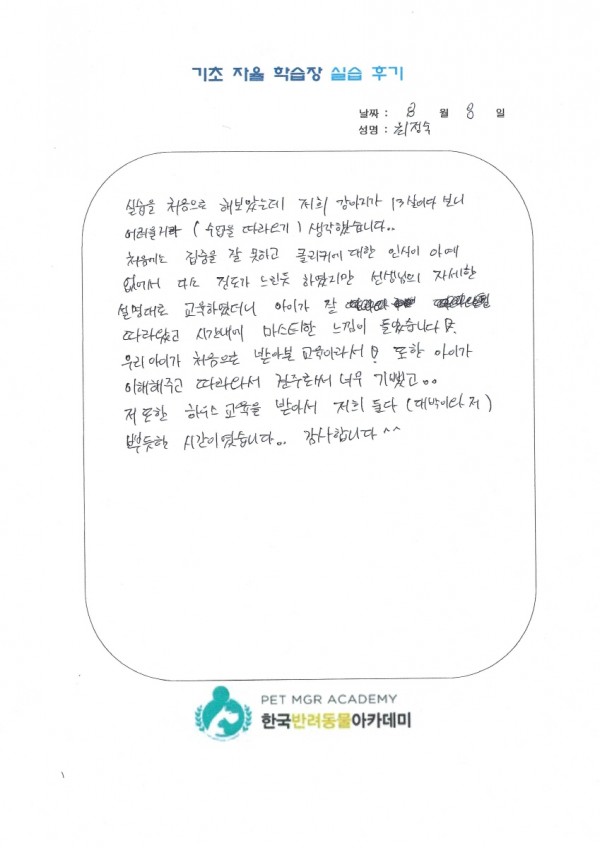 기초 자율 학습장 실습 후기
날짜 : 8 월 8 일
성명 : 최정숙
실습을 처음으로 해보았는데 저희 강아지가 13살이다 보니
어려울거라 (수업을 따라오기) 생각했습니다..
처음에는 집중을 잘 못하고 클리커에 대한 인식이 아예
없어서 다소 진도가 느린듯 하였지만 선생님의 자세한
설명대로 교육하였더니 아이가 잘
따라왔고 시간내에 마스터한 느낌이 들었습니다
우리아이가 처음으로 받아본 교육이라서 또한 아이가
이해해주고 따라와서 견주로써 너무 기뻤고..
저 또한 하우스 교육을 받아서 저희 둘다 (대박이와 저)
뿌듯한 시간이였습니다.. 감사합니다^^
PET MGR ACADEMY
한국반려동물아카데미